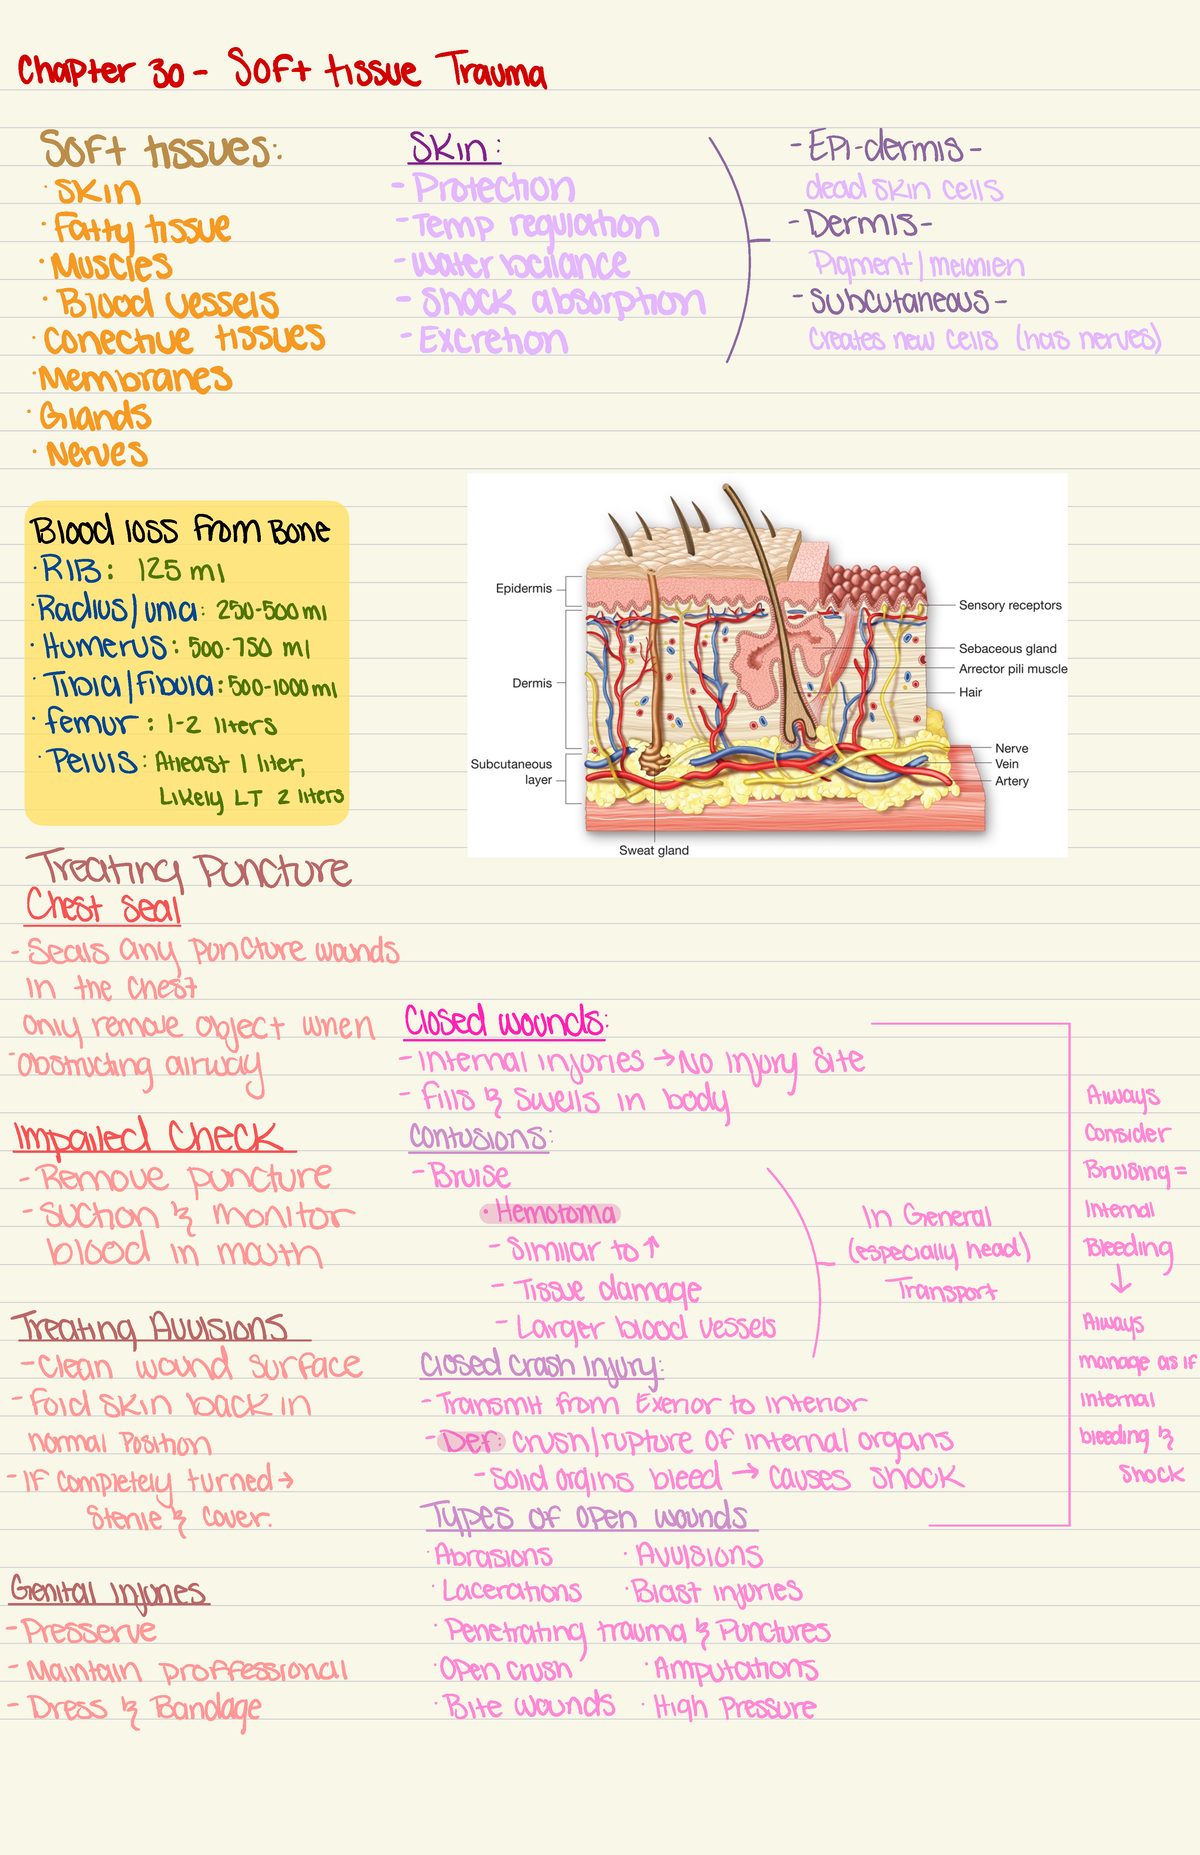 Chapter 30 - Soft tissue Trauma
Soft tissues:
· Skin
· Fatty tissue
· Muscles
· Blood vessels
· Conective tissues
· Membranes
· Glands
· Nerves
Skin:
- Protection
- Temp regulation
- Water balance
- Shock absorption
- Excretion
- Epi-dermis -
dead skin cells
- Dermis -
Pigment / melonien
- Subcutaneous -
Creates new cells (has nerves)
Blood loss from Bone
· RIB: 125 ml
· Radius/ulna: 250-500 ml
· Humerus: 500-750 ml
· Tibia/Fibula: 500-1000 ml
· femur: 1-2 liters
· Pelvis: Atleast 1 liter,
Likely LT 2 liters
Epidermis
Dermis
Subcutaneous
layer
Sweat gland
Sensory receptors
Sebaceous gland
Arrector pili muscle
Hair
Nerve
Vein
Artery
Treating Puncture
Chest Seal
- Seals any puncture wounds
in the chest
only remove object when
- obstructing airway
Impailed Check
- Remove puncture
- Suction & monitor
blood in mouth
Treating Avulsions
- Clean wound surface
- Fold skin back in
normal Position
- If completely turned →
Sterile & cover.
Genital Injuries
- Presserve
- Maintain proffessional
- Dress & Bandage
Closed wounds:
- Internal injuries → No injury site
- Fills & swells in body
Contusions:
- Bruise
· Hemotoma
- Similar to ↑
- Tissue damage
- Larger blood vessels
In General
(especially head)
Transport
Closed Crash Injury:
- Transmit from Exerior to interior
- Def: crush/rupture of internal organs
- Solid orgins bleed → causes shock
Types of open wounds
· Abrasions
· Avulsions
· Lacerations
· Blast injuries
· Penetrating trauma & Punctures
· Open crush
· Amputations
· Bite wounds
· High Pressure
Always
Consider
Bruising =
Internal
Bleeding
↓
Always
manage as if
internal
bleeding &
shock